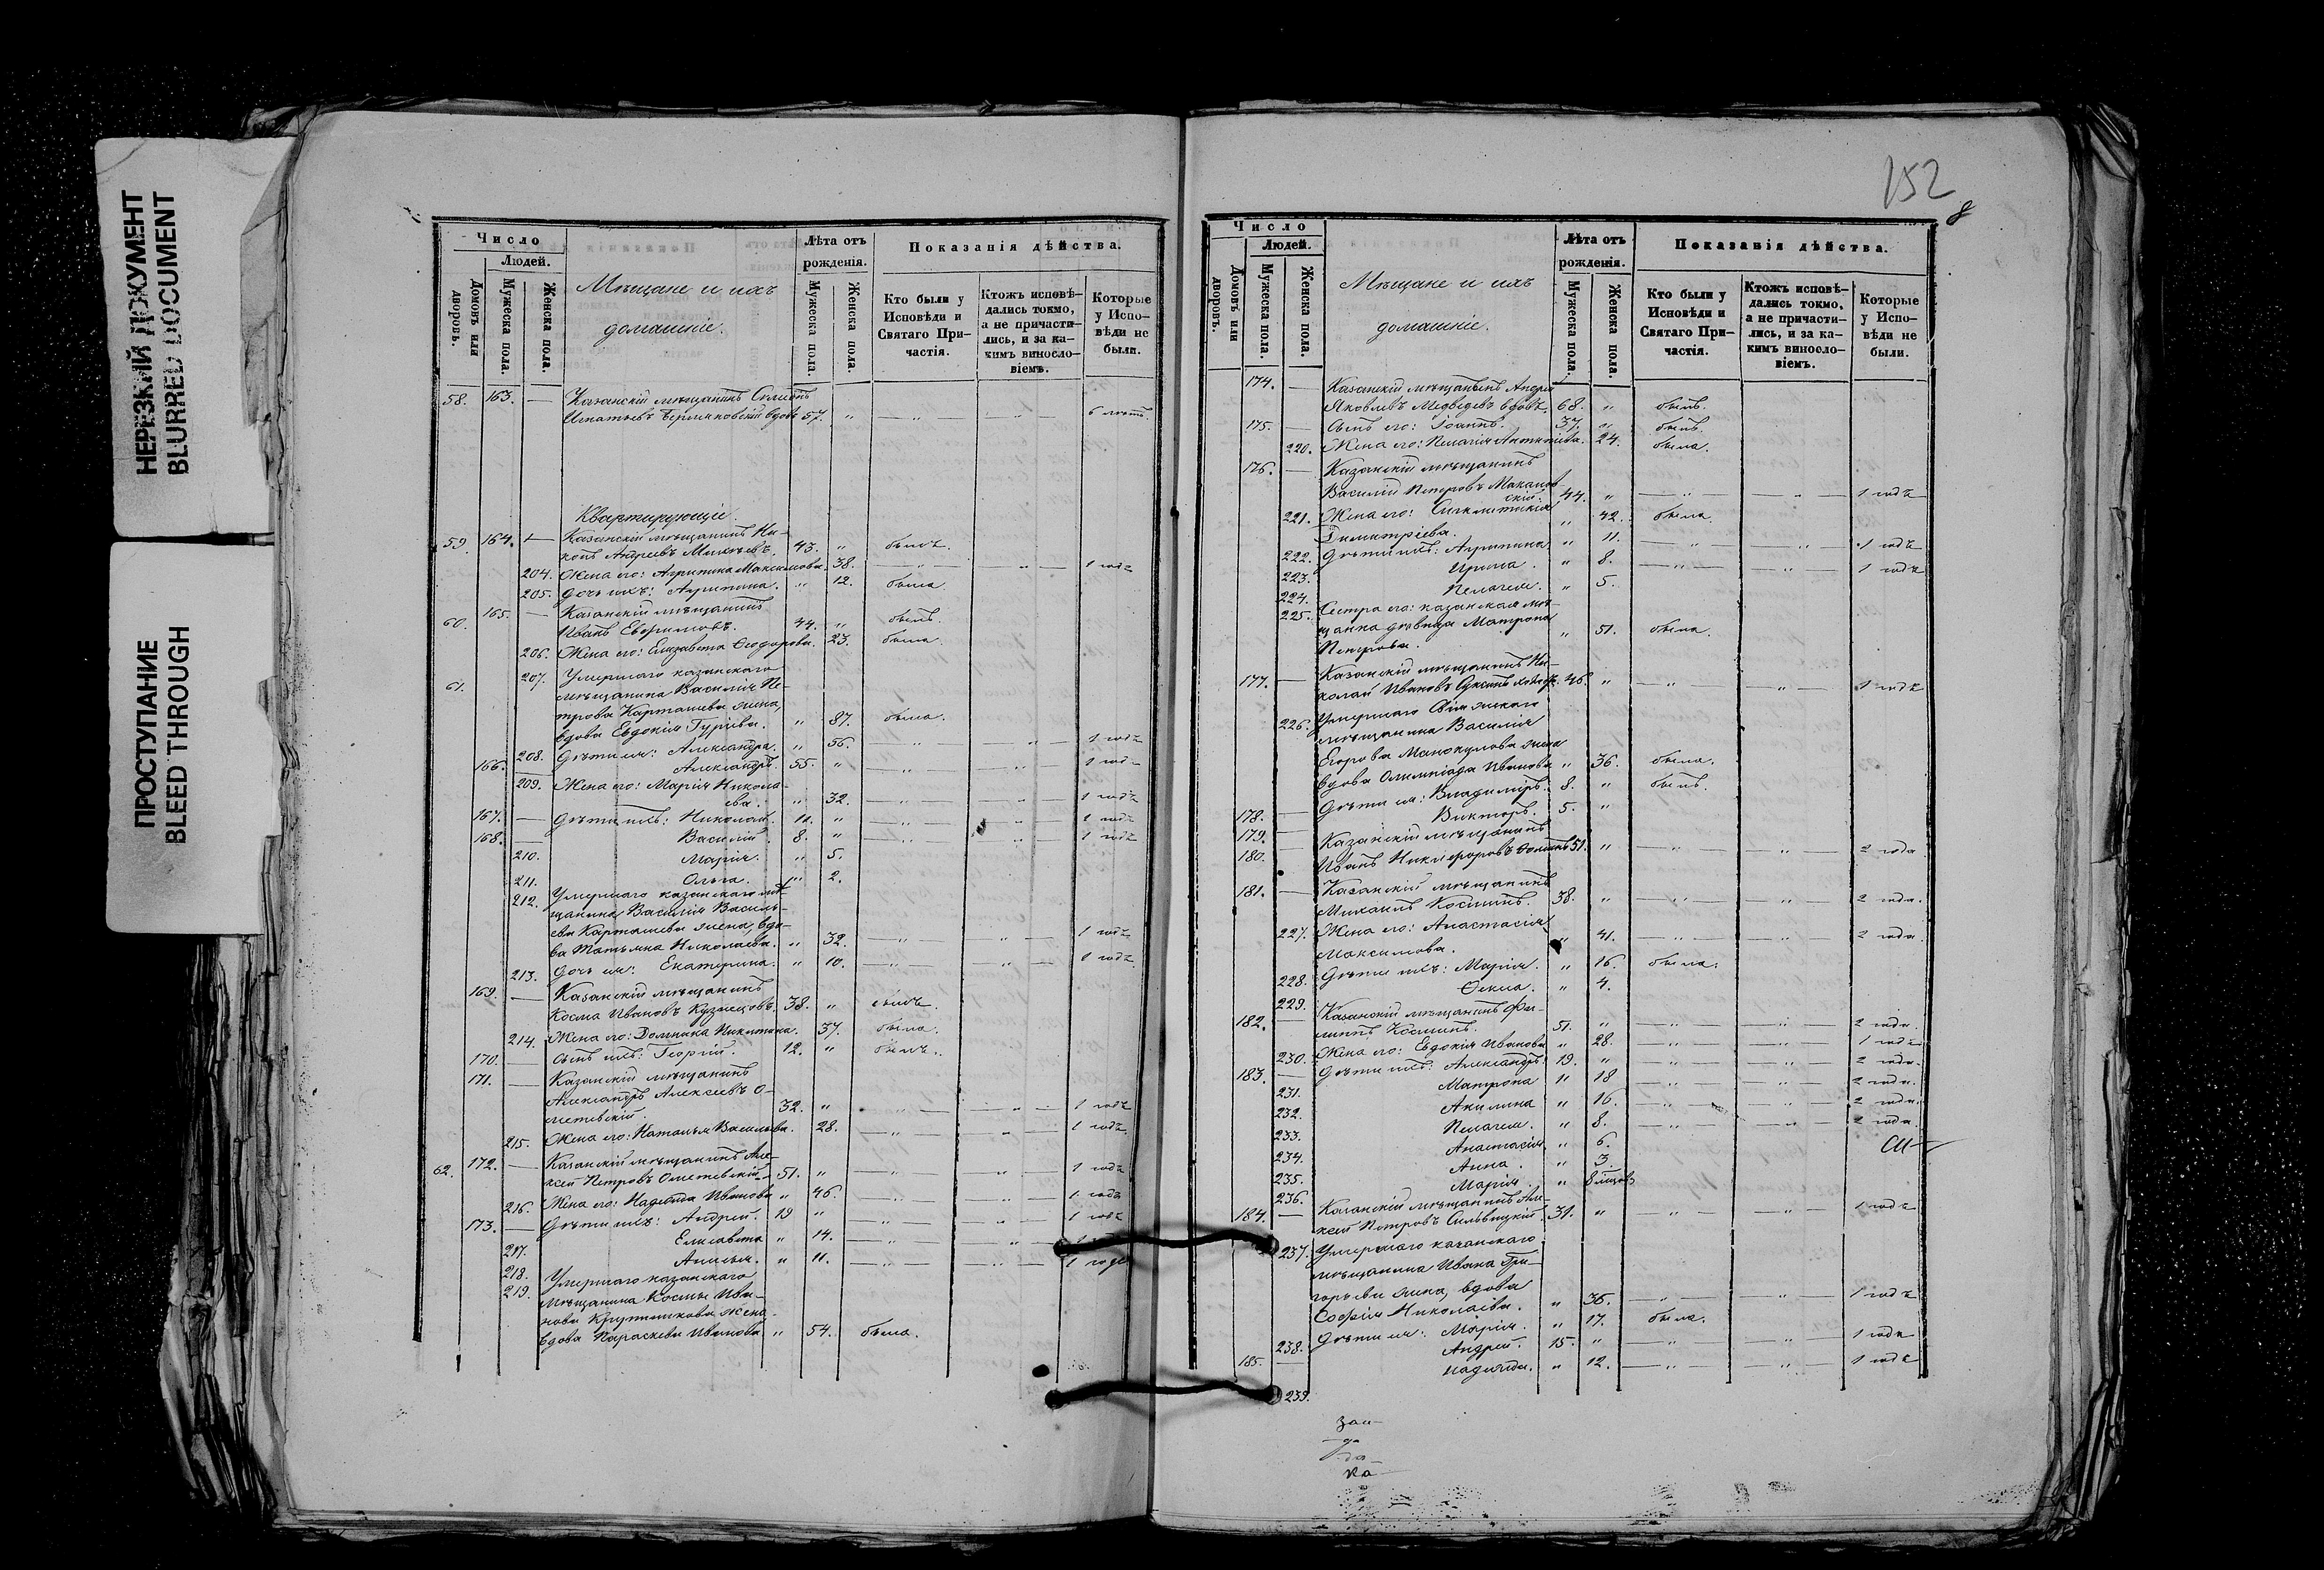 НЕРЕЗКИЙ ДОКУМЕНТ
BLURRED DOCUMENT
ПРОСТУПАНИЕ
BLEED THROUGH
Число
Людей.
Домовъ или дворовъ.
Мужеска пола.
Женска пола.
Мѣщане и ихъ
домашніе.
Лѣта отъ рожденія.
Мужеска пола.
Женска пола.
Показанія дѣйства.
Кто были у Исповѣди и Святаго Причастія.
Ктожъ исповѣдались токмо, а не причастились, и за какимъ винословіемъ.
Которые у Исповѣди не были.
58. 163. — Казанскій мѣщанинъ
Игнатьевъ вдовъ 57. " — " — — " — 6 лѣтъ
Квартирующіе.
59. 164. — Казанскій мѣщанинъ Ни-
конъ Андреевъ 43. " былъ.
204. Жена его: Агрипина Максимова. 38. — " — — " — 1 годъ
205. Дочь ихъ: Агрипина. " 12. была.
60. 165. — Казанскій мѣщанинъ
Иванъ Евфимовъ. 44. " былъ.
206. Жена его: Елизавета Ѳеодорова. 23. была.
61. 207. Умершаго казанскаго
мѣщанина Василія Пе-
трова Карташева жена,
вдова Евдокія Гуріева. " 87. была.
208. Дѣти ея: Александра. " 56. — " — — " — 1 годъ
166. Александръ. 55. " — " — — " — 1 годъ
209. Жена его: Марія Никола-
ева. " 32. — " — — " — 1 годъ
167. — Дѣти ихъ: Николай. " — " — — " — 1 годъ
168. — Василій. 8. " — " — — " — 1 годъ
210. Марія. " 5.
211. Ольга. " 2.
212. Умершаго казанскаго мѣ-
щанина Василія Василь-
ева Карташева жена, вдо-
ва Татьяна Николаева. " 32. — " — — " — 1 годъ
213. Дочь ея: Екатерина. " 10. — " — — " — 1 годъ
169. — Казанскій мѣщанинъ
Косма Ивановъ Кузнецовъ. 38. " былъ.
214. Жена его: Домника Никитина. 37. была.
170. — Сынъ ихъ: Георгій. 12. " былъ.
171. — Казанскій мѣщанинъ
Александръ Алексеевъ О-
метевскій. 32. " — " — — " — 1 годъ
215. Жена его: Наталья Васильева. 28. — " — — " — 1 годъ.
62. 172. — Казанскій мѣщанинъ Але-
ксей Петровъ Ометевскій 51. " — " — — " — 1 годъ
216. Жена его: Надежда Иванова " 46. — " — — " — 1 годъ
173. — Дѣти ихъ: Андрей. 19 " — " — — " — 1 годъ
217. Елисавета " 14. — " — — " —
218. " 11. — " — — " — 1 годъ
219. Умершаго казанскаго
мѣщанина Космы Ива-
нова жена
вдова Параскева Иванова " 54. была.
152
8
Число
Людей.
Домовъ или дворовъ.
Мужеска пола.
Женска пола.
Мѣщане и ихъ
домашніе.
Лѣта отъ рожденія.
Мужеска пола.
Женска пола.
Показанія дѣйства.
Кто были у Исповѣди и Святаго Причастія.
Ктожъ исповѣдались токмо, а не причастились, и за какимъ винословіемъ.
Которые у Исповѣди не были.
174. — Казанскій мѣщанинъ Андрей
Яковлевъ Медведевъ вдовъ. 68. " былъ.
175. — Сынъ его: Іоаннъ. 37. " былъ.
220. Жена его: Пелагія 24. была.
176. — Казанскій мѣщанинъ
Василій Петровъ Маканов-
скій. 44. " — " — — " — 1 годъ
221. Жена его: Синклитикія
Димитріева. " 42. была.
222. Дѣти ихъ: Агрипина. " 11. — " — — " — 1 годъ
223. Ирина. " 8. — " — — " — 1 годъ
224. Пелагея. " 5.
225. Сестра его: казанская мѣ-
щанка дѣвица Матрона
Петрова. " 51. была.
177. — Казанскій мѣщанинъ Ни-
колай Ивановъ 46. " — " — — " — 1 годъ
226. Умершаго
мѣщанина Василія
Егорова жена
вдова Олимпіада Иванова " 36. была.
178. — Дѣти ея: Владиміръ. 8. " былъ.
179. — Викторъ. 5. "
180. — Казанскій мѣщанинъ
Иванъ Никифоровъ 51. " — " — — " — 2 года
181. — Казанскій мѣщанинъ
Михаилъ Косминъ. 38. " — " — — " — 2 года.
227. Жена его: Анастасія
Максимова. " 41. — " — — " — 2 года
228. Дѣти ихъ: Марія. " 16. была.
229. Ѳекла. " 4.
182. — Казанскій мѣщанинъ Фи-
липпъ Косминъ. 51. " — " — — " — 2 года.
230. Жена его: Евдокія Иванова " 28. — " — — " — 1 годъ
183. — Дѣти ихъ: Александръ. 19. " — " — — " — 2 года.
231. Матрона " 18 — " — — " — 2 года.
232. Акилина " 16. — " — — " — 2 года.
233. Пелагея. " 8. — " — — " — 2 года.
234. Анастасія " 6.
235. Анна. " 3.
236. Марія. "
184. — Казанскій мѣщанинъ Але-
ксей Петровъ Сильвицкій. 31. " — " — — " — 1 годъ
237. Умершаго казанскаго
мѣщанина Ивана Гри-
горьева жена, вдова
Софія Николаева. " 36. — " — — " — 1 годъ
238. Дѣти ея: Марія. " 17. была.
185. — Андрей. 15. " — " — — " — 1 годъ
239. Надежда. " 12. — " — — " — 1 годъ
ка